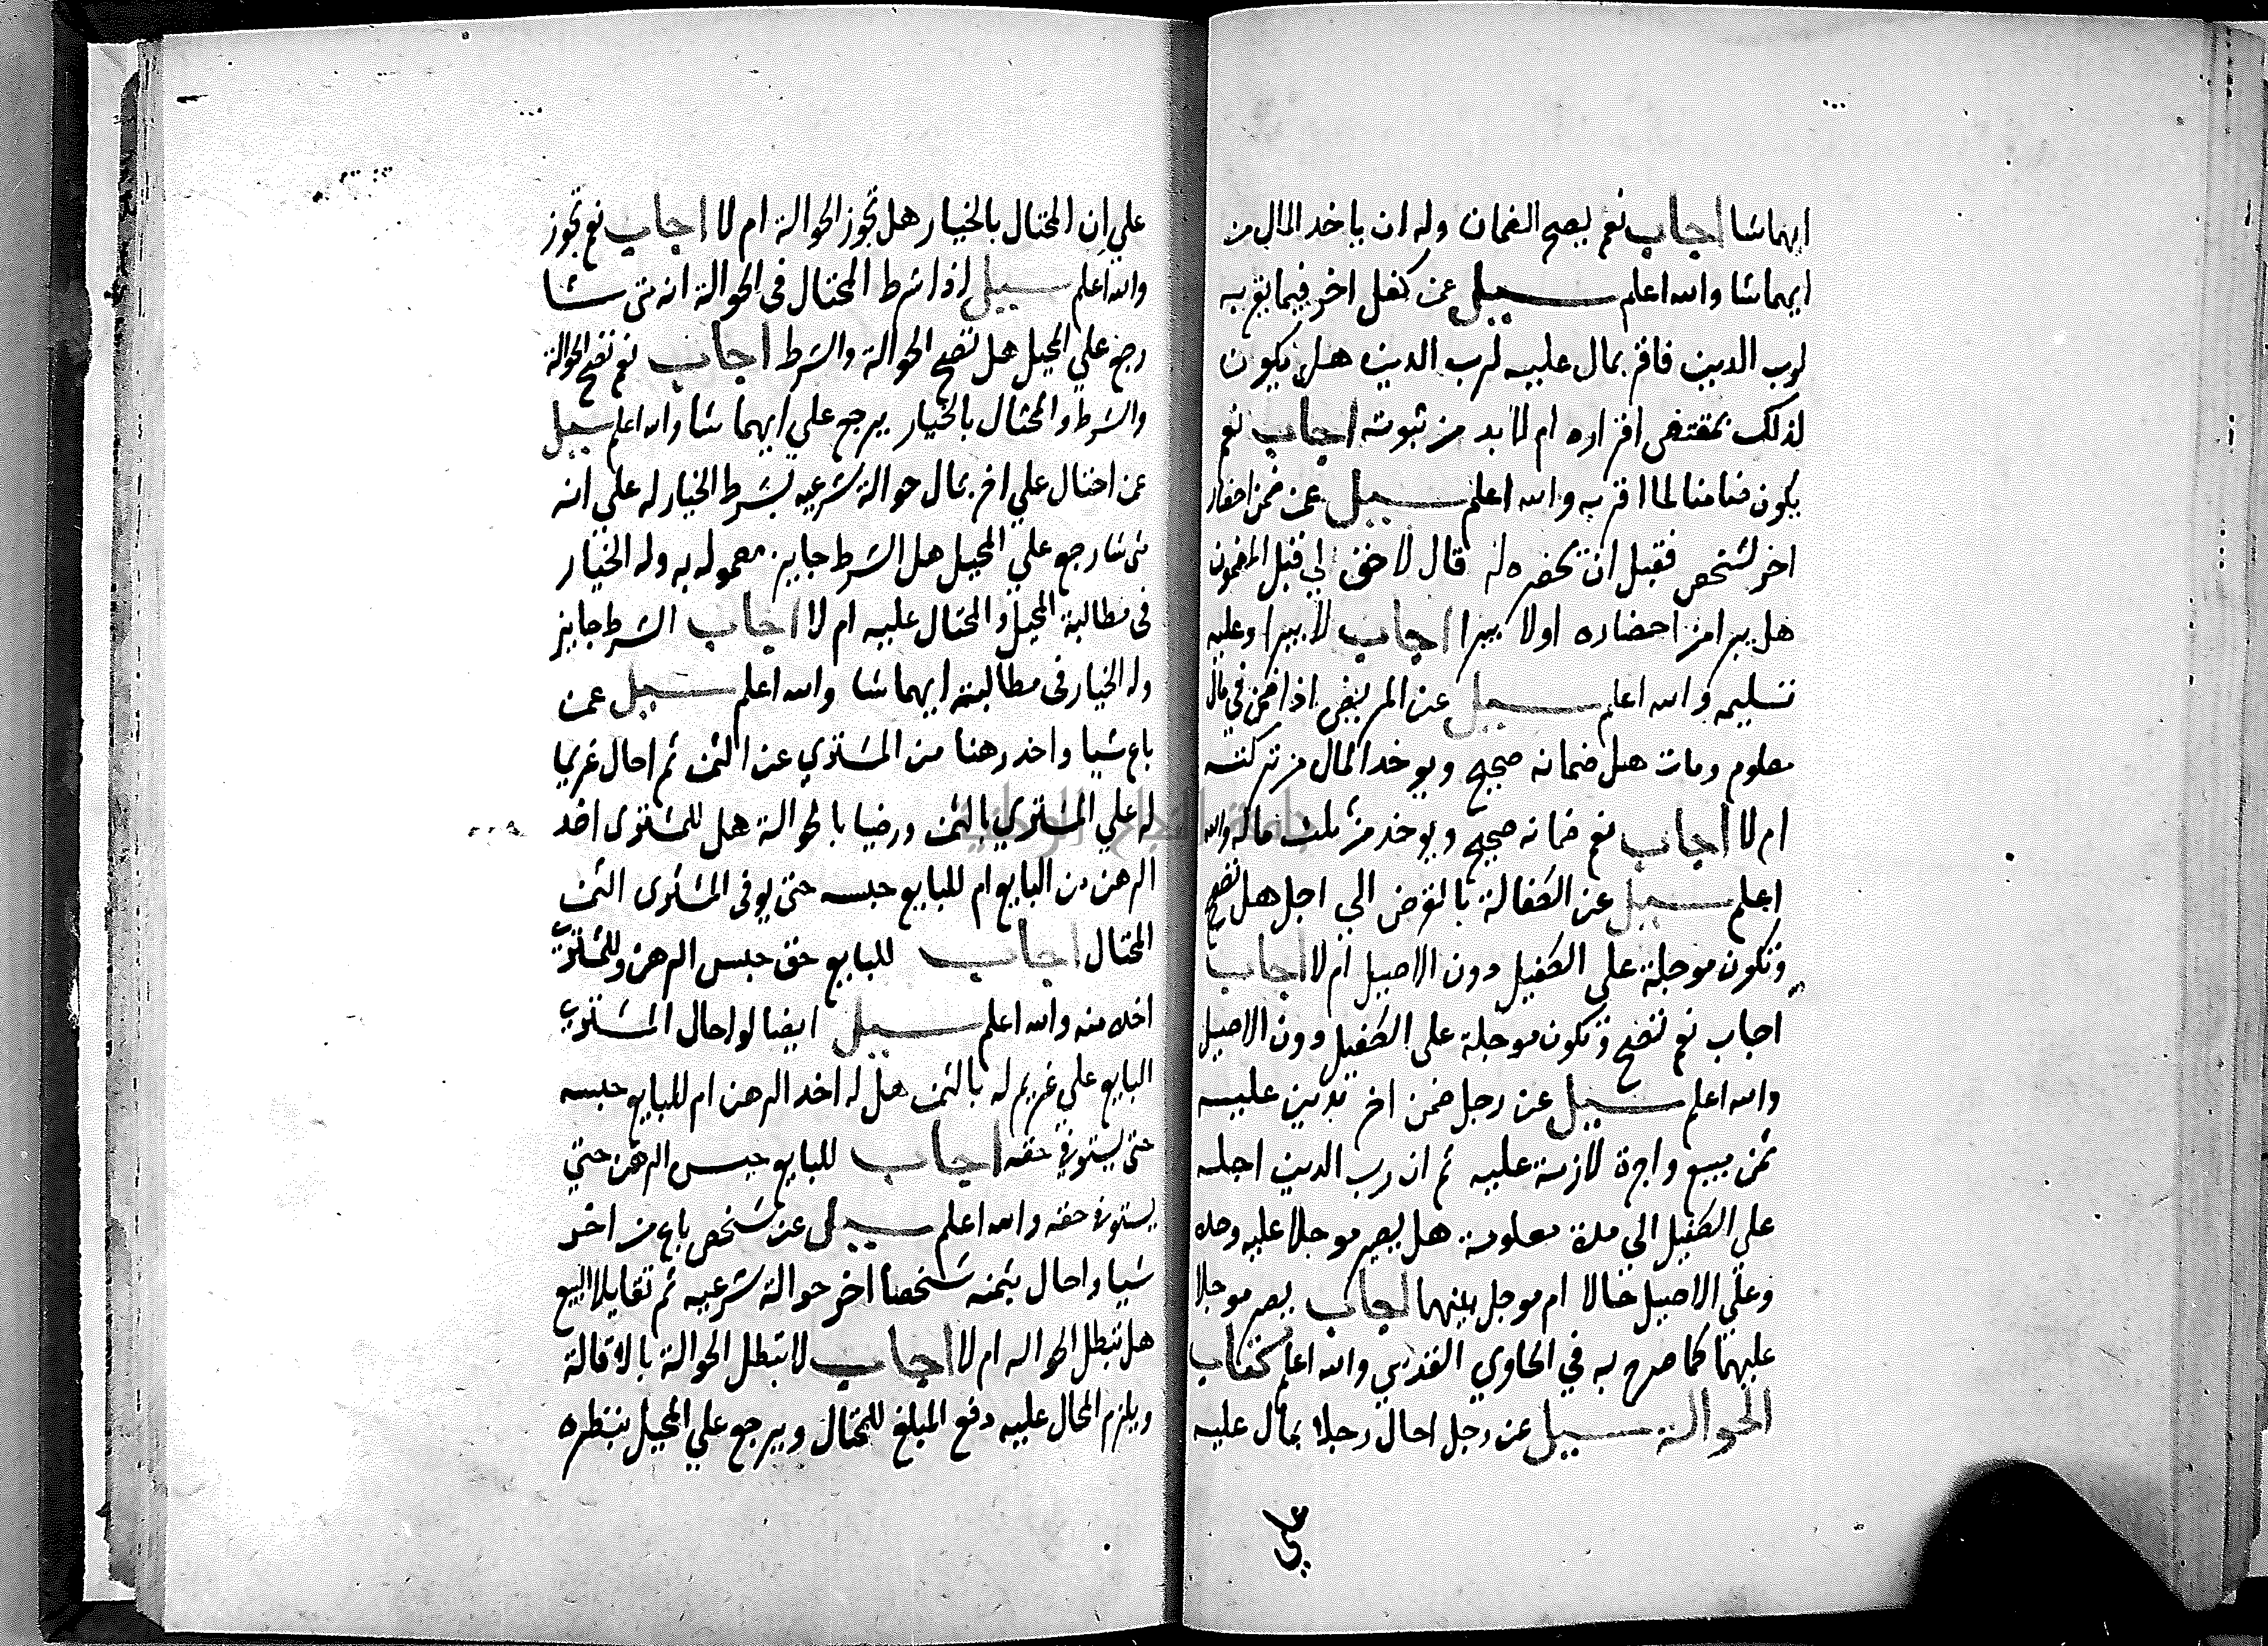 ايهما شا اجاب نعم يصح الضمان وله ان ياخد المال من
ايهما شا والله اعلم سيل عن كفل اخر فيما يقر به
لرب الدين فاقر بمال عليه لرب الدين هل يكون
لذلك بمقتضى اقراره ام لا بد من ثبوته اجاب نعم
يكون ضامنا لما اقر به والله اعلم سيل عمن ضمن احضار
اخر لشخص فقبل ان يحضره له قال لا حق لي قبل المضمون
هل يبرا من احضاره اولا يبرا اجاب لا يبرا وعليه
تسليمه والله اعلم سيل عن المريض اذا ضمن في مال
معلوم ومات هل ضمانه صحيح ويوخد المال من تركته
ام لا اجاب نعم ضمانه صحيح ويوخد من ثلث ماله والله
اعلم سيل عن الكفالة بالقرض الي اجل هل تصح
وتكون موجلة علي الكفيل دون الاصيل ام لا اجاب
اجاب نعم تصح وتكون موجلة على الكفيل دون الاصيل
والله اعلم سيل عن رجل ضمن اخر بدين عليه
ثمن مبيع واجرة لازمة عليه ثم ان رب الدين اجله
علي الكفيل الي مدة معلومة هل يصير موجلا عليه وحده
وعلي الاصيل حالا ام موجل عليهما اجاب يصير موجلا
عليهما كما صرح به في الحاوي القدسي والله اعلم كتاب
الحوالة سيل عن رجل احال رجلا بمال عليه
علي
علي ان المحتال بالخيار هل تجوز الحوالة ام لا اجاب نعم تجوز
والله اعلم سيل اذا شرط المحتال في الحوالة انه متى شا
رجع علي المحيل هل تصح الحوالة والشرط اجاب نعم تصح الحوالة
والشرط والمحتال بالخيار يرجع علي ايهما شا والله اعلم سيل
عمن احتال علي اخر بمال حوالة شرعيه بشرط الخيار له علي انه
متى شا رجع علي المحيل هل الشرط جايز معمول به وله الخيار
في مطالبة المحيل والمحتال عليه ام لا اجاب الشرط جايز
وله الخيار في مطالبة ايهما شا والله اعلم سيل عمن
باع شيا واخد رهنا من المشتري عن الثمن ثم احال غريما
له علي المشتري بالثمن ورضيا بالحوالة هل للمشترى اخد
الرهن من البايع ام للبايع حبسه حتى يوفى المشترى الثمن
المحتال اجاب للبايع حق حبس الرهن وللمشتري
اخده منه والله اعلم سيل ايضا لو احال المشتري
البايع علي غريم له بالثمن هل له اخد الرهن ام للبايع حبسه
حتى يستوفي حقه اجاب للبايع حبس الرهن حتي
يستوفي حقه والله اعلم سيل عن شخص باع من اخر
شيا واحال بثمنه شخصا اخر حوالة شرعيه ثم تقايلا البيع
هل تبطل الحواله ام لا اجاب لا تبطل الحوالة بالاقالة
ويلزم المحال عليه دفع المبلغ للمحتال ويرجع علي المحيل بنظره
جامعة النجاح الوطنية